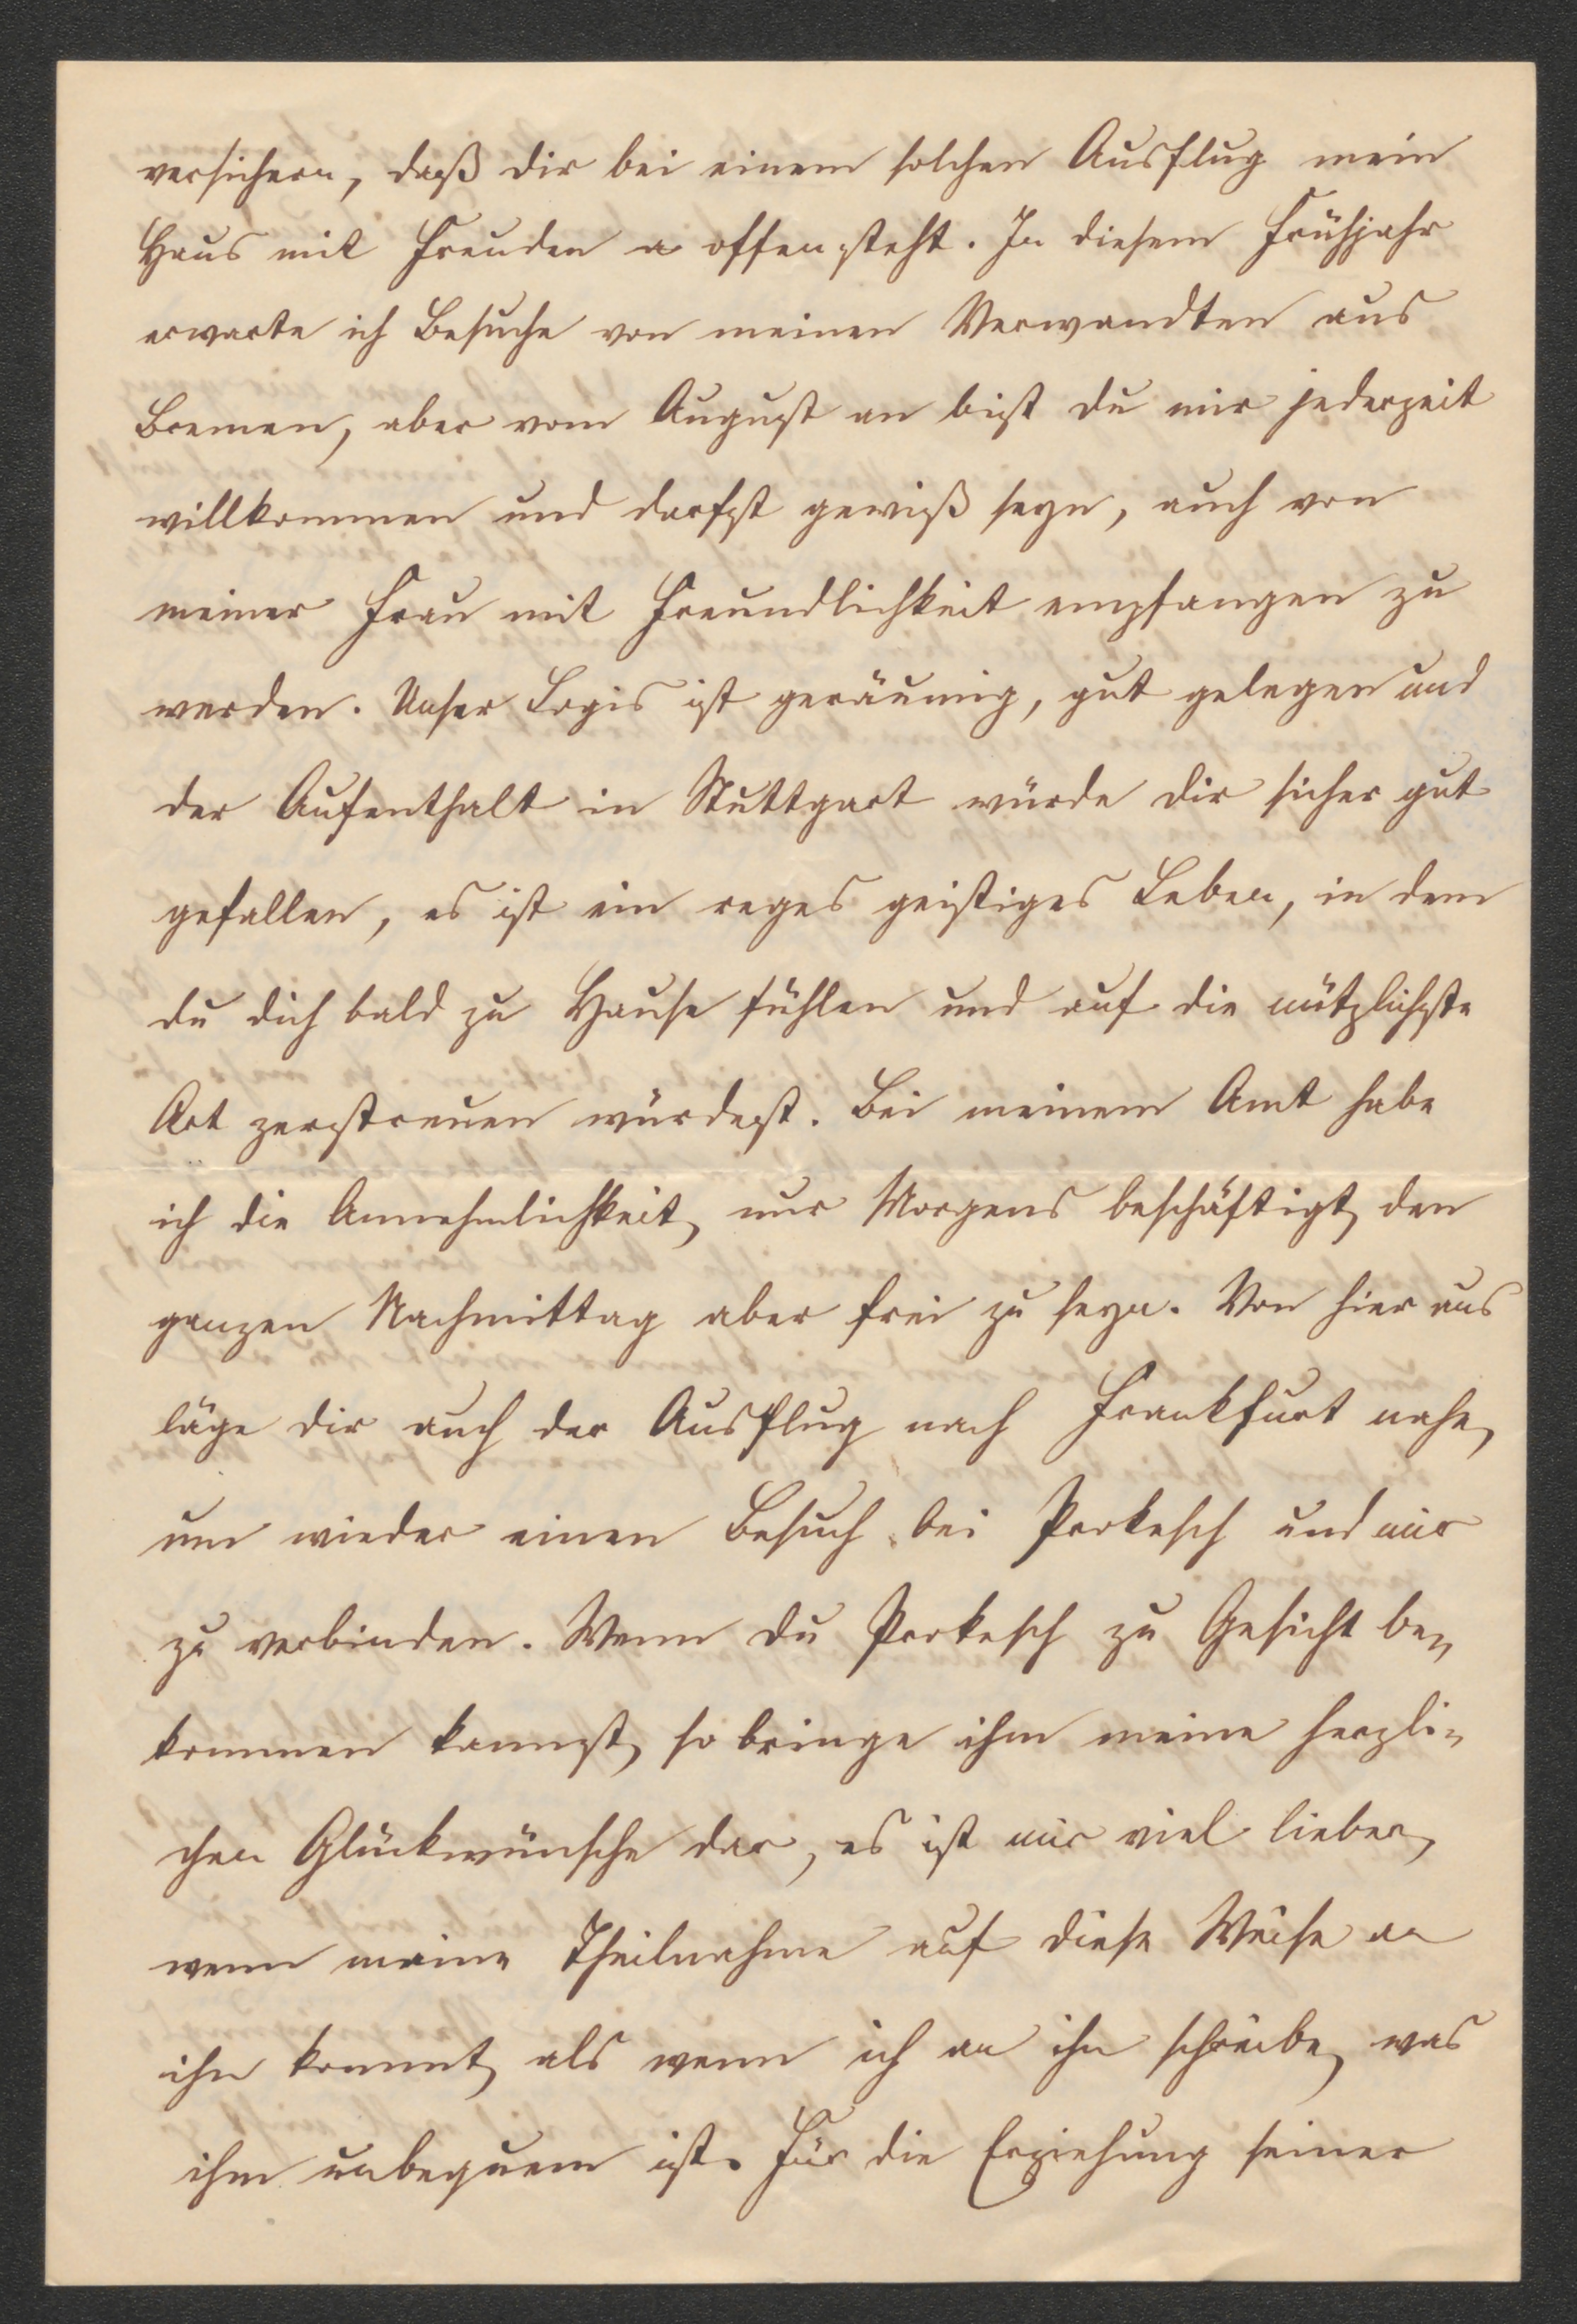 versichern, daß dir bei einem solchen Ausflug mein
Haus mit Freuden a offen steht. In diesem Frühjahr
erwarte ich Besuche von meinen Verwandten aus
Bremen, aber vom August an bist du mir jederzeit
willkommen und darfst gewiß seyn, auch von
meiner Frau mit Freundlichkeit empfangen zu
werden. Unser Logis ist geräumig, gut gelegen und
der Aufenthalt in Stuttgart würde dir sicher gut
gefallen, es ist ein reges geistiges Leben, in dem
du dich bald zu Hause fühlen und auf die nützlichste
Art zerstreuen würdest. Bei meinem Amt habe
ich die Annehmlichkeit, nur Morgens beschäftigt, den
ganzen Nachmittag aber frei zu seyn. Von hier aus
läge dir auch der Ausflug nach Frankfurt nahe,
um wieder einen Besuch bei Prokesch und mir
zu verbinden. Wenn du Prokesch zu Gesicht be-
kommen kannst, so bringe ihm meine herzli-
chen Glückwünsche dar, es ist mir viel lieber,
wenn meine Theilnahme auf diese Weise an
ihn kommt, als wenn ich an ihn schreibe, was
ihm unbequem ist. Für die Erziehung seiner